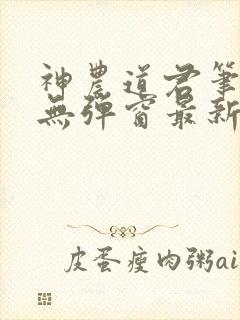 神農道君筆
無彈窗最新
皮蛋瘦肉粥ai